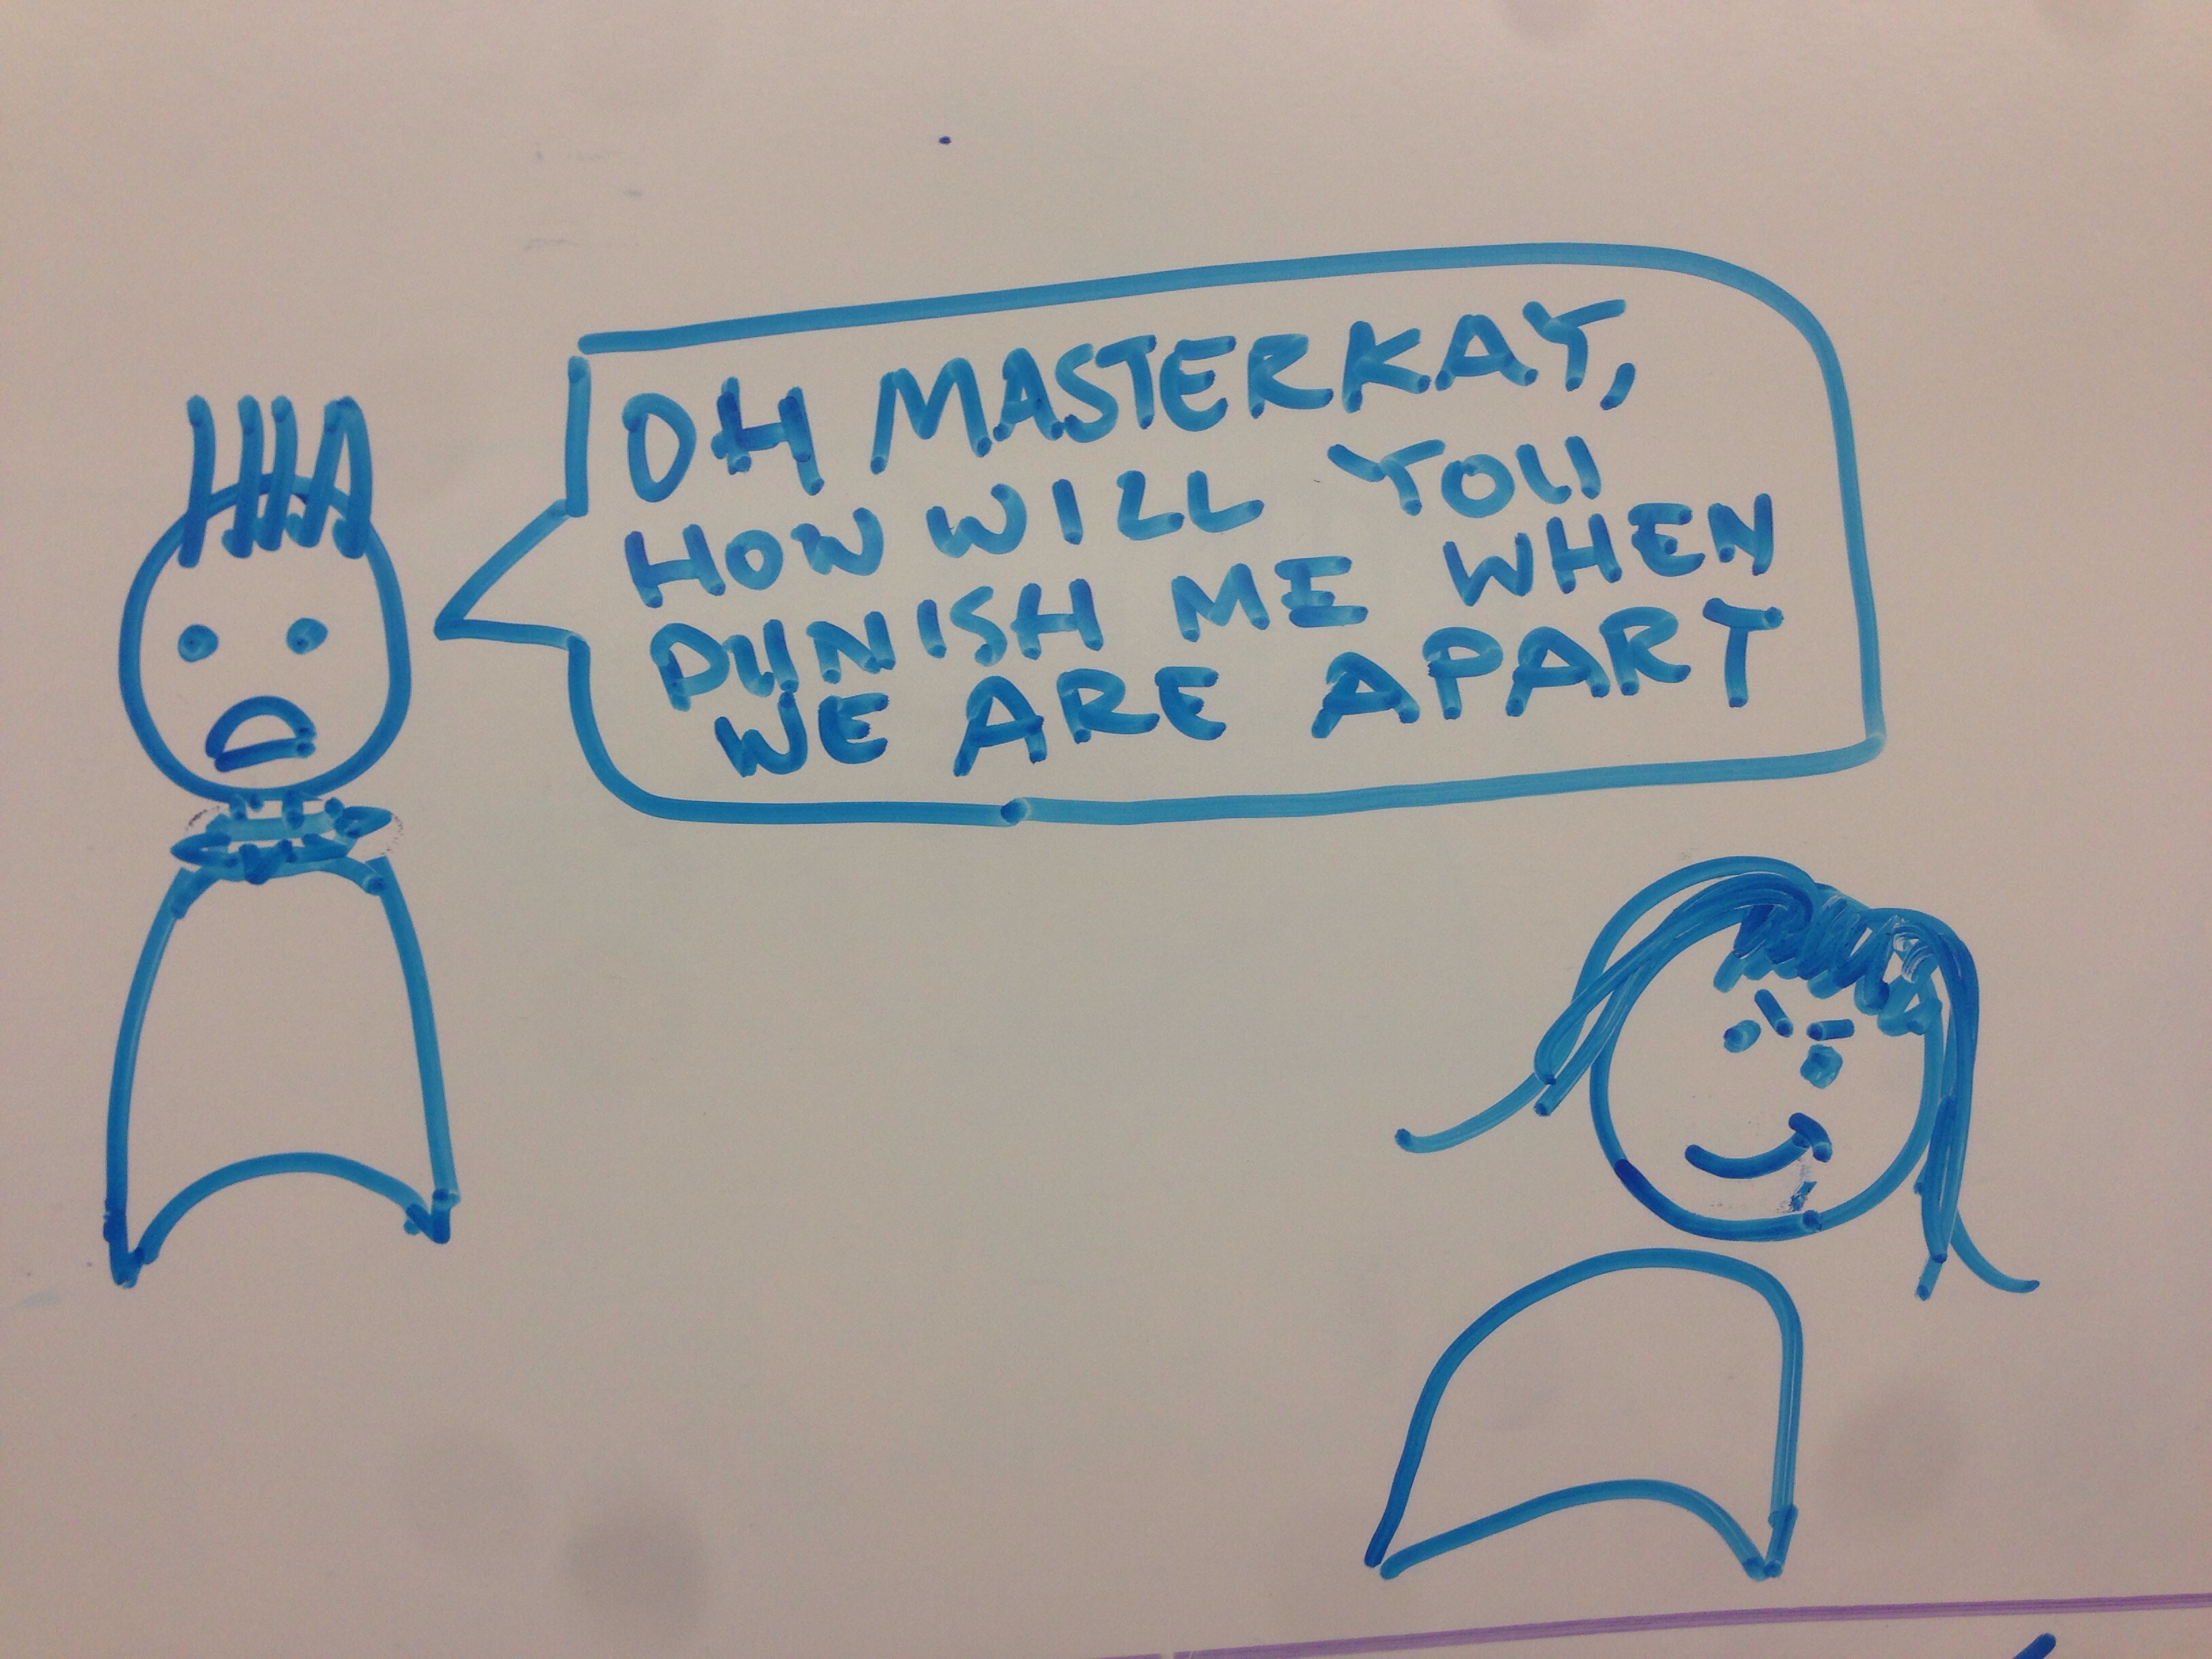 OH MASTERKAY,
HOW WILL YOU
PUNISH ME WHEN
WE ARE APART